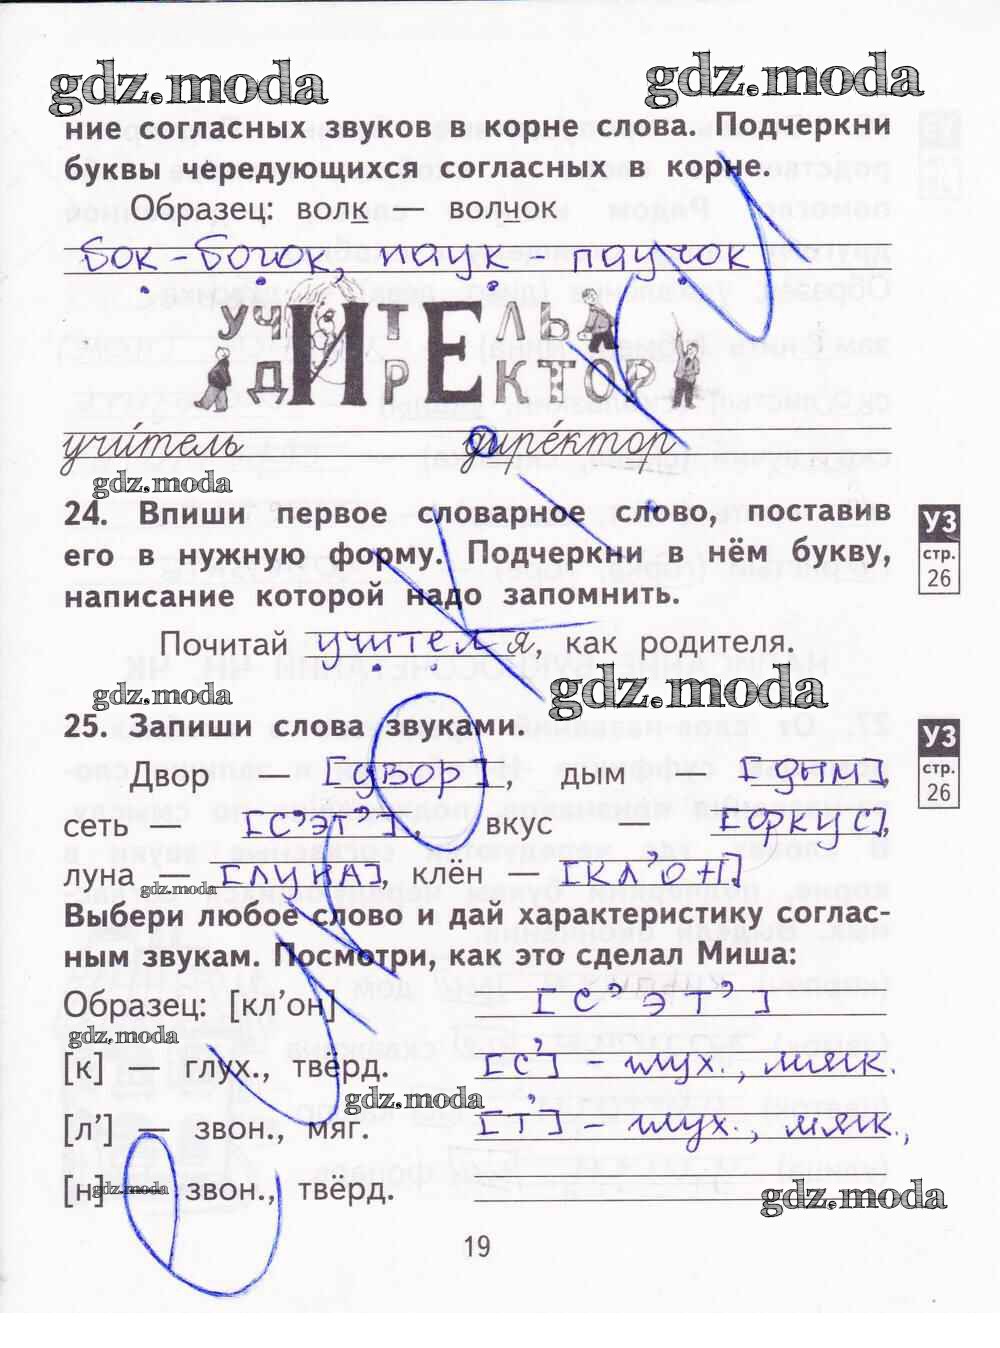 gdz.moda gdz.moda
ние согласных звуков в корне слова. Подчеркни
буквы чередующихся согласных в корне.
Образец: волк — волчок
бок - бочок, паук - паучок
УЧИТЕЛЬ
ДИРЕКТОР
учитель директор
gdz.moda
24. Впиши первое словарное слово, поставив
его в нужную форму. Подчеркни в нём букву,
написание которой надо запомнить.
УЗ
стр.
26
Почитай учителя, как родителя.
gdz.moda gdz.moda
25. Запиши слова звуками.
УЗ
стр.
26
Двор — [двор], дым — [дым],
сеть — [с’эт’], вкус — [фкус],
луна — [луна], клён — [кл’он]
gdz.moda
Выбери любое слово и дай характеристику соглас-
ным звукам. Посмотри, как это сделал Миша:
Образец: [кл’он] [с’эт’]
gdz.moda
[к] — глух., твёрд. [с’] - глух., мягк.
gdz.moda
[л’] — звон., мяг. [т’] - глух., мягк.,
[н] — звон., твёрд.
gdz.moda gdz.moda
19